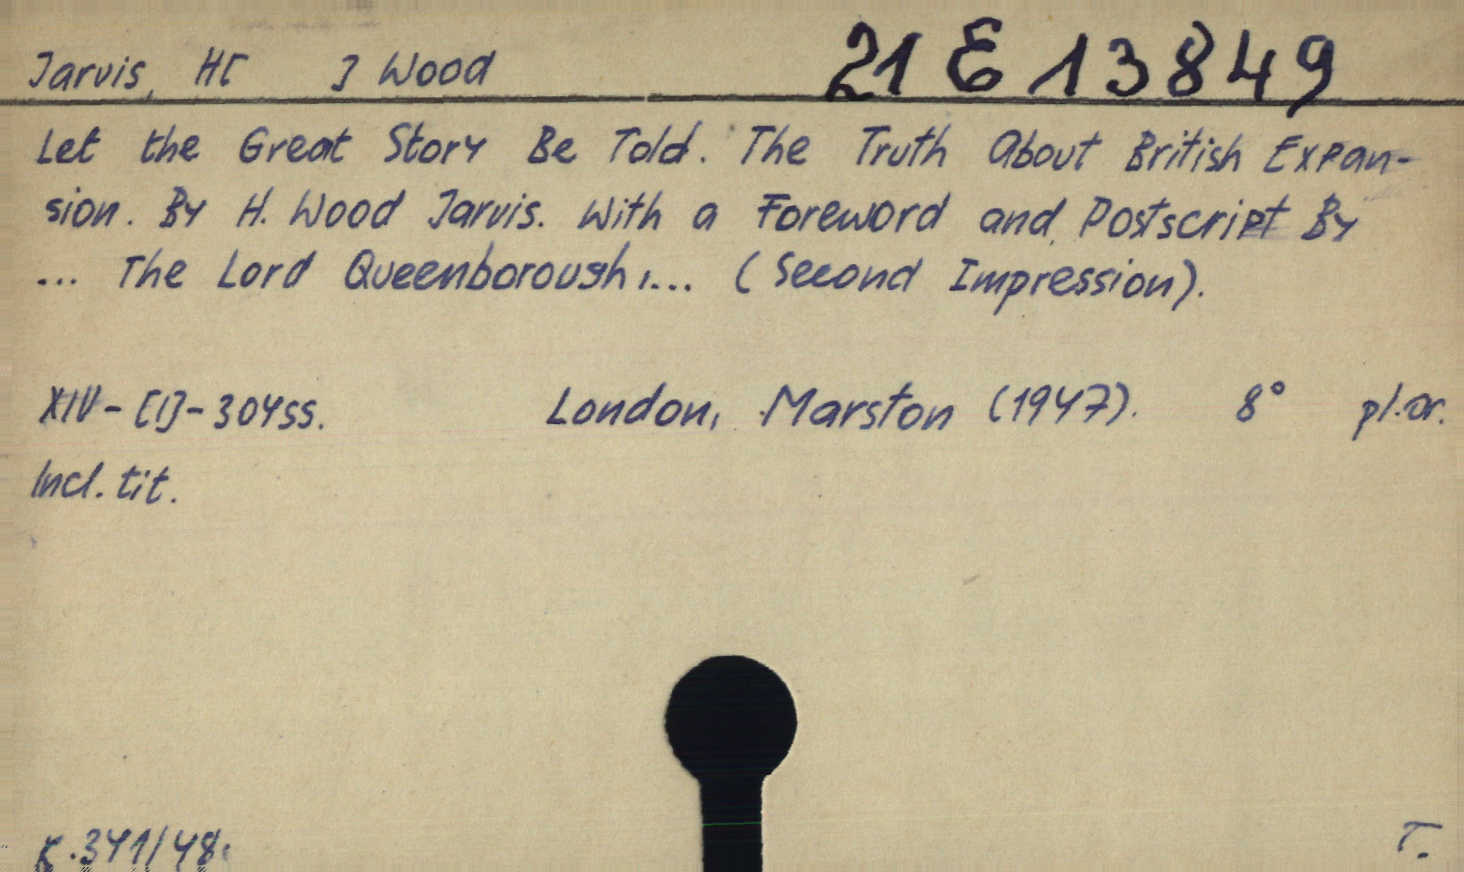 Jarvis, H[ ] Wood 21 E 13849
Let the Great Story Be Told. The Truth About British Expan-
sion. By H. Wood Jarvis. With a Foreword and Postscript By
... The Lord Queenborough,... (Second Impression).
XIV-[1]-304ss. London, Marston (1947). 8° pl.or.
Incl. tit.
K.341/48. T.